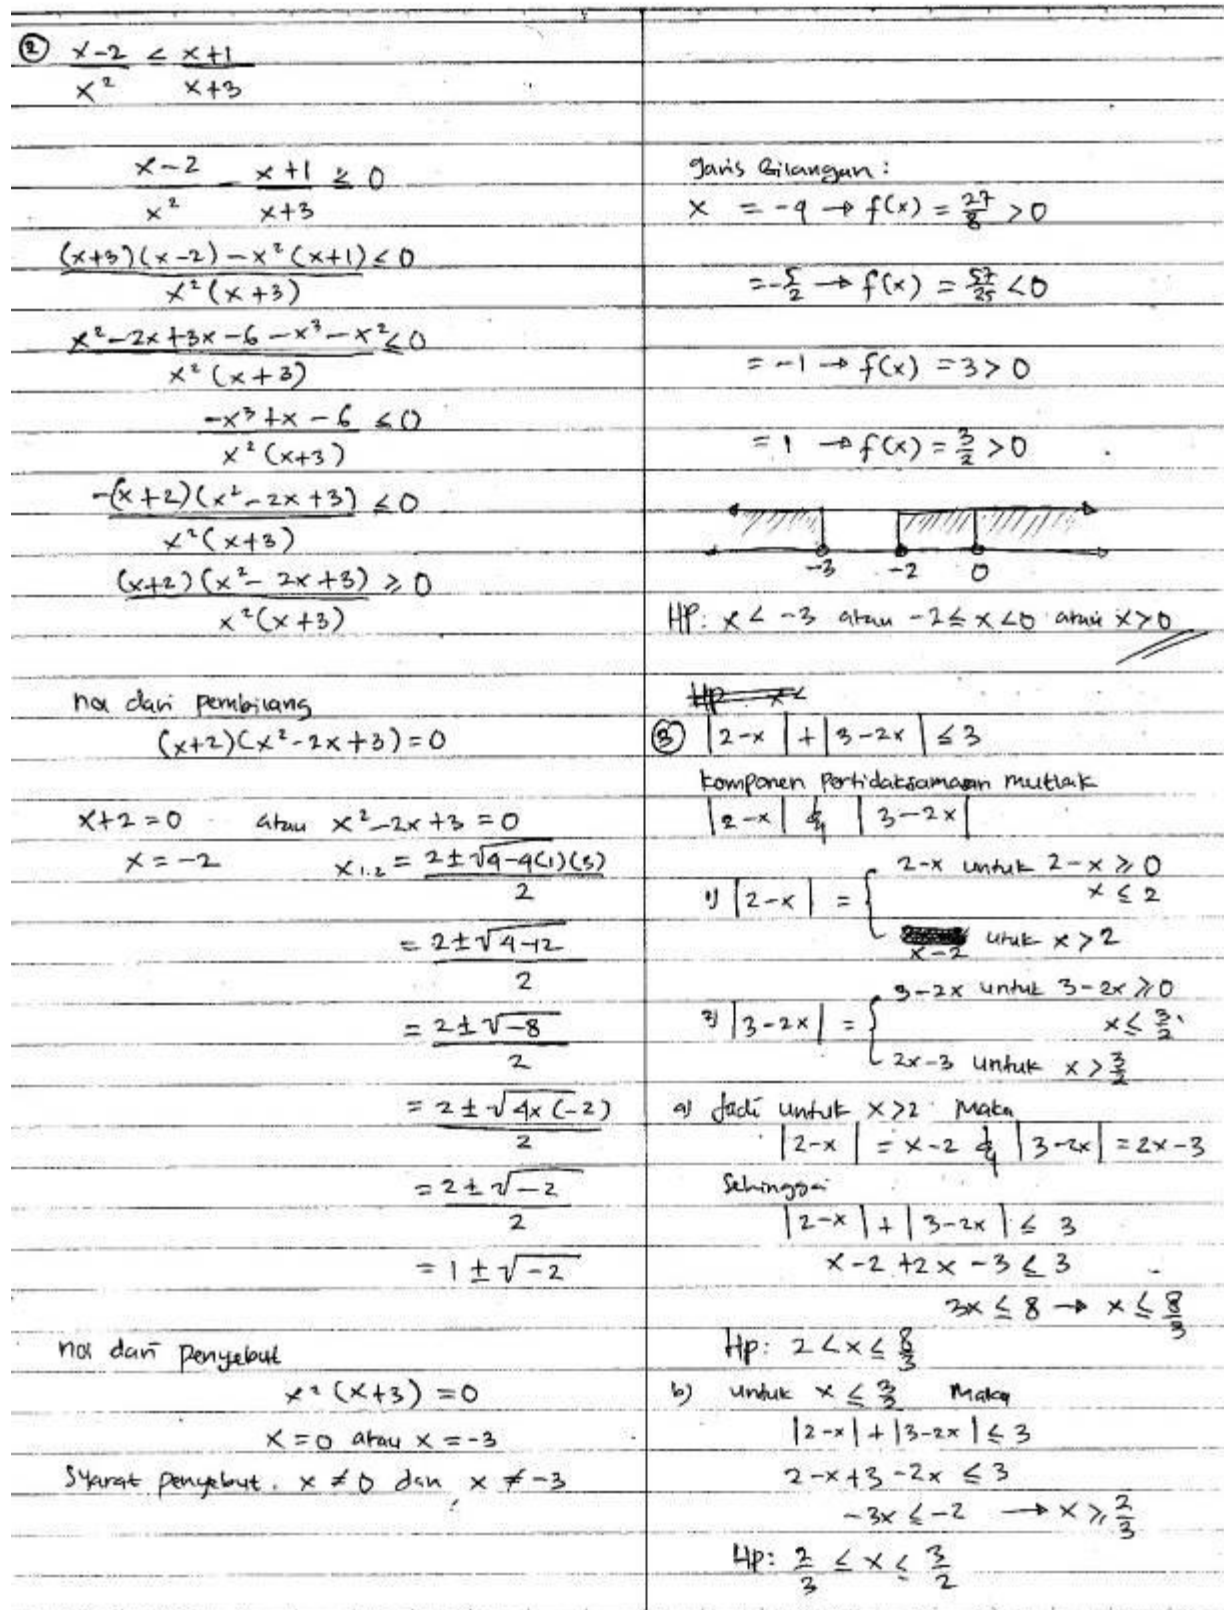 ② x-2 / x² ≤ x+1 / x+3
x-2 / x² - x+1 / x+3 ≤ 0
(x+3)(x-2) - x²(x+1) / x²(x+3) ≤ 0
x² - 2x + 3x - 6 - x³ - x² / x²(x+3) ≤ 0
-x³ + x - 6 / x²(x+3) ≤ 0
-(x+2)(x² - 2x + 3) / x²(x+3) ≤ 0
(x+2)(x² - 2x + 3) / x²(x+3) ≥ 0
nol dari pembilang
(x+2)(x² - 2x + 3) = 0
x+2 = 0 atau x² - 2x + 3 = 0
x = -2 x1.2 = 2 ± √4-4(1)(3) / 2
= 2 ± √4-12 / 2
= 2 ± √-8 / 2
= 2 ± √4x(-2) / 2
= 2 ± √-2 / 2
= 1 ± √-2
nol dari penyebut
x²(x+3) = 0
x = 0 atau x = -3
Syarat penyebut. x ≠ 0 dan x ≠ -3
garis bilangan :
x = -4 → f(x) = 27/8 > 0
= -5/2 → f(x) = 57/25 < 0
= -1 → f(x) = 3 > 0
= 1 → f(x) = 3/2 > 0
-3 -2 0
HP: x < -3 atau -2 ≤ x < 0 atau x > 0
③ |2-x| + |3-2x| ≤ 3
komponen Pertidaksamaan mutlak
|2-x| & |3-2x|
1) |2-x| = { 2-x untuk 2-x ≥ 0
x ≤ 2
x-2 utuk x > 2
2) |3-2x| = { 3-2x untuk 3-2x ≥ 0
x ≤ 3/2
2x-3 untuk x > 3/2
a) Jadi untuk x > 2 Maka
|2-x| = x-2 & |3-2x| = 2x-3
Sehingga
|2-x| + |3-2x| ≤ 3
x-2 + 2x - 3 ≤ 3
3x ≤ 8 → x ≤ 8/3
Hp: 2 < x ≤ 8/3
b) untuk x ≤ 3/2 Maka
|2-x| + |3-2x| ≤ 3
2-x+3-2x ≤ 3
-3x ≤ -2 → x ≥ 2/3
Hp: 2/3 ≤ x ≤ 3/2